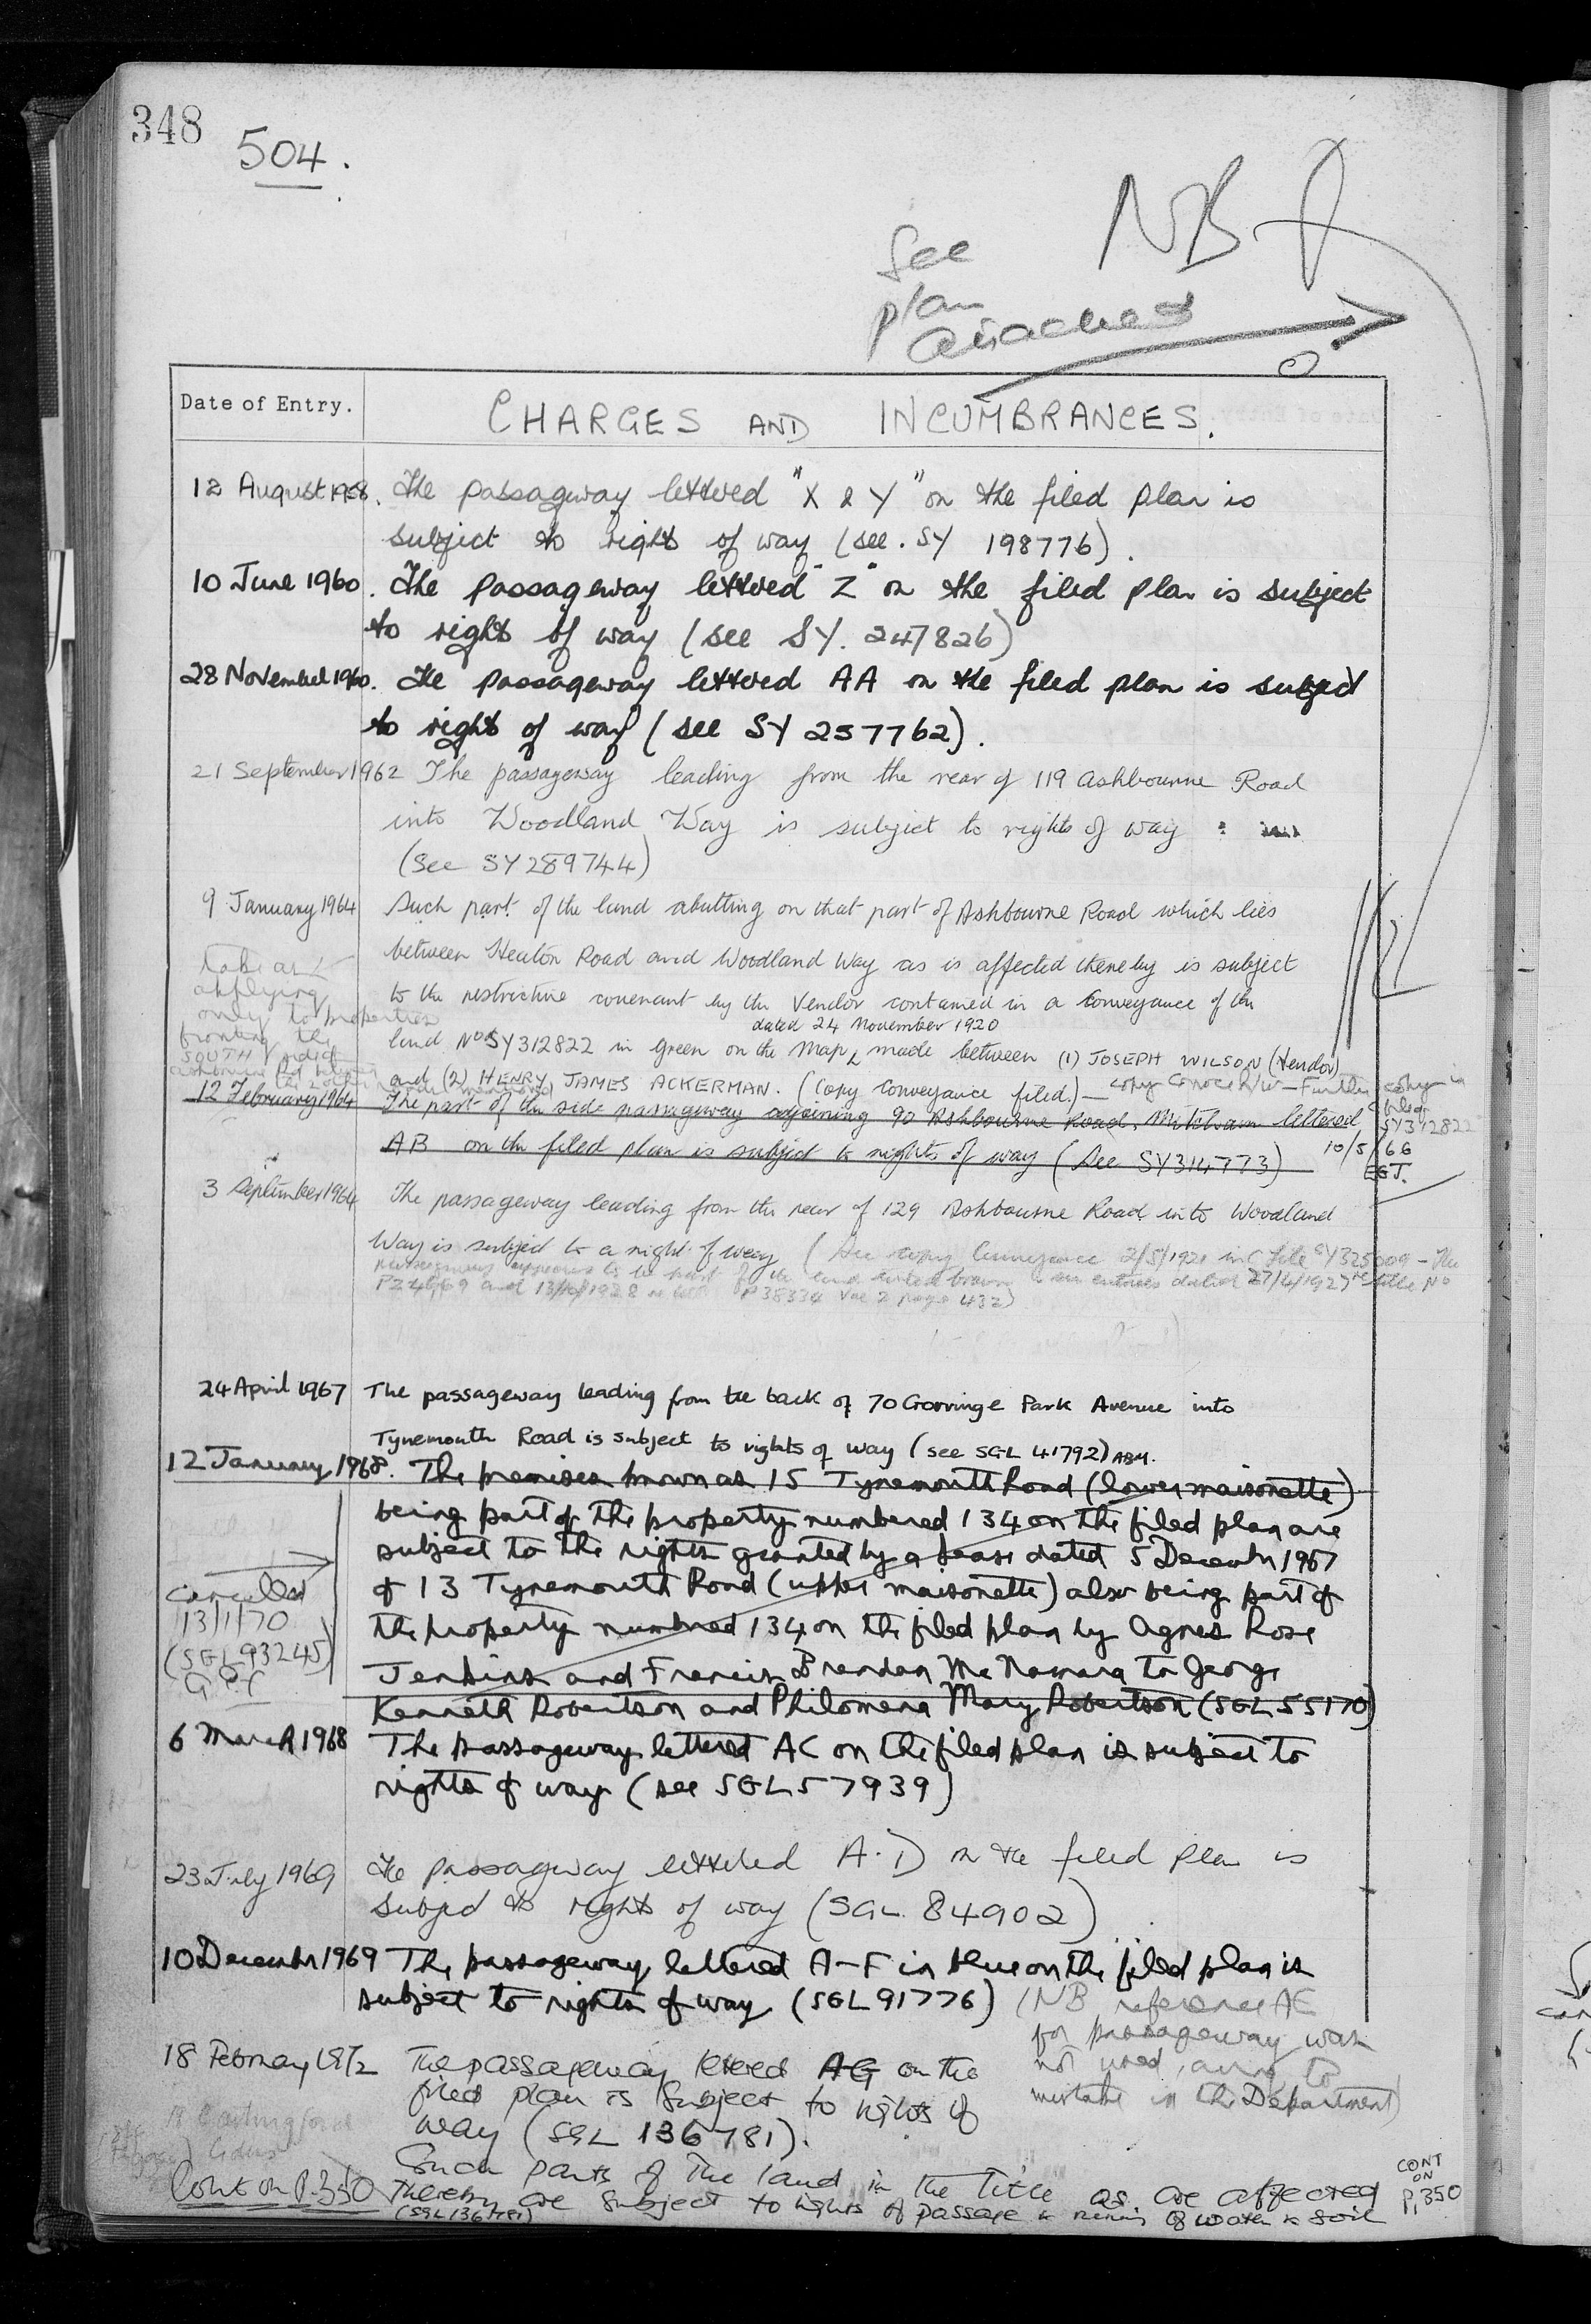 348
504.
NB
See
plan
attached
Date of Entry.
CHARGES AND INCUMBRANCES.
12 August 1958. The passageway lettered "X & Y" on the filed plan is
subject to rights of way (see. SY 198776).
10 June 1960. The passageway lettered "Z" on the filed plan is subject
to rights of way (see SY. 247826)
28 November 1960. The passageway lettered AA on the filed plan is subject
to rights of way (see SY 257762).
21 September 1962 The passageway leading from the rear of 119 Ashbourne Road
into Woodland Way is subject to rights of way
(See SY289744)
9 January 1964 Such part of the land abutting on that part of Ashbourne Road which lies
between Heaton Road and Woodland Way as is affected thereby is subject
to the restrictive covenant by the Vendor contained in a Conveyance of the
dated 24 November 1920
land Nos SY312822 in green on the Map, made between (1) JOSEPH WILSON (Vendor)
and (2) HENRY JAMES ACKERMAN. (Copy Conveyance filed.) — Further copy in
applying
only to properties
fronting the
SOUTH side of
filed
SY312822
10/5/66
EGJ.
12 February 1964 The part of the side passageway adjoining 90 Ashbourne Road, Mitcham lettered
AB on the filed plan is subject to rights of way (See SY314773)
3 September 1964 The passageway leading from the rear of 129 Ashbourne Road into Woodland
Way is subject to a right of way (See copy Conveyance 2/5/1921 in File SY325009 - The
passageway appears to be part of the land tinted brown entries dated 27/4/1927 title No
and 13/10/1928 P38334 Vol 2 page 432)
24 April 1967 The passageway leading from the back of 70 Gorringe Park Avenue into
Tynemouth Road is subject to rights of way (see SGL 41792) ABM.
12 January 1968. The premises known as 15 Tynemouth Road (lower maisonette)
being part of the property numbered 134 on the filed plan are
subject to the rights granted by a Lease dated 5 December 1967
of 13 Tynemouth Road (upper maisonette) also being part of
the property numbered 134 on the filed plan by Agnes Rose
Jenkins and Francis Brendan Mc Namara to George
Kenneth Robertson and Philomena Mary Robertson (SGL 55170)
cancelled
13/1/70
(SGL93245)
6 March 1968 The passageway lettered AC on the filed plan is subject to
rights of way (see SGL57939)
23 July 1969 The passageway lettered A.D on the filed plan is
subject to rights of way (SGL 84902)
10 December 1969 The passageway lettered A-F in blue on the filed plan is
subject to rights of way (SGL91776) (NB reference AE
for passageway was
not used, owing to
mistake in the Department)
18 February 1972 The passageway lettered AG on the
filed plan is subject to rights of
way (SGL 136781).
Such parts of the land in the Title as are affected
thereby are subject to rights of passage & running of water & soil
(SGL136781)
Cont on P.350
CONT
ON
P.350